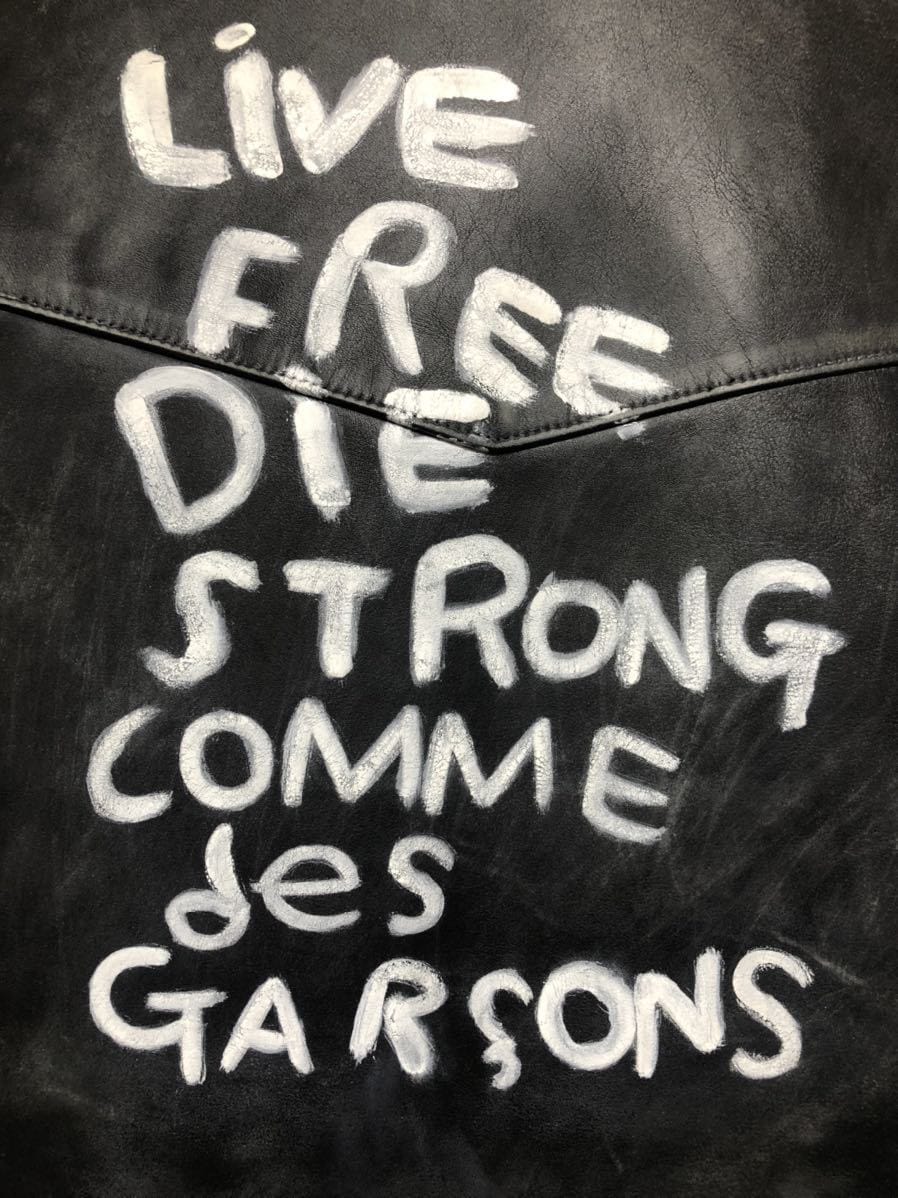 LiVE
FREE
DIE
STRONG
COMME
des
GARÇONS